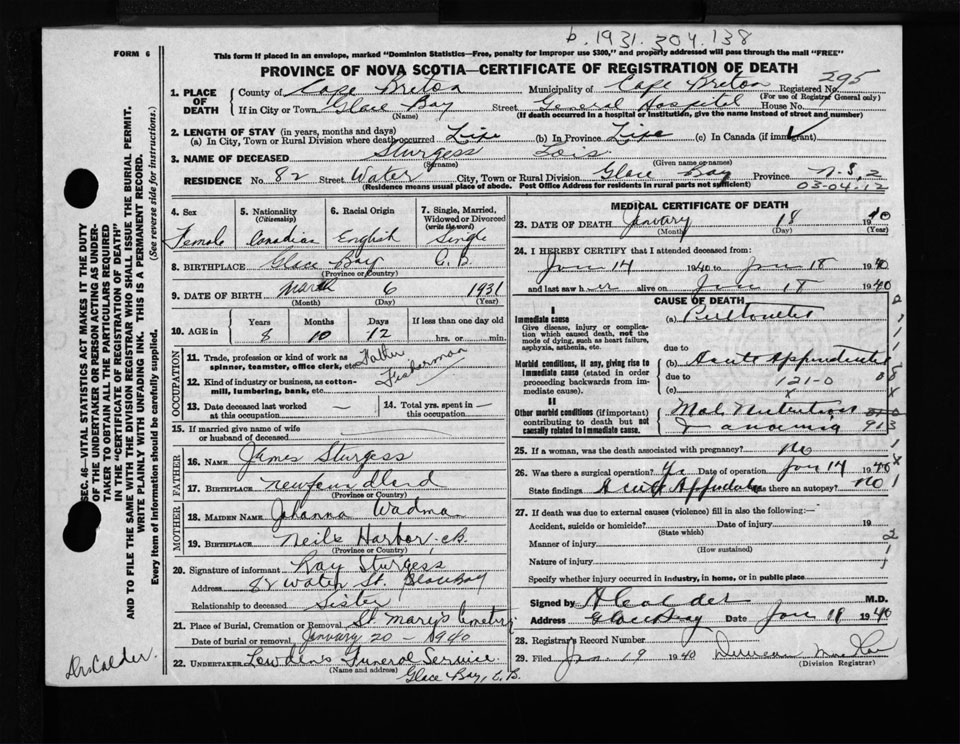 b. 1931. 304. 138
FORM 6
This form if placed in an envelope, marked "Dominion Statistics—Free, penalty for improper use $300," and properly addressed will pass through the mail "FREE"
PROVINCE OF NOVA SCOTIA—CERTIFICATE OF REGISTRATION OF DEATH
295
1. PLACE OF DEATH County of Cape Breton Municipality of Cape Breton Registered No.
(For use of Registrar General only)
If in City or Town Glace Bay Street General Hospital House No.
(Name) (If death occurred in a hospital or institution, give the name instead of street and number)
2. LENGTH OF STAY (in years, months and days)
(a) In City, Town or Rural Division where death occurred Life (b) In Province Life (c) In Canada (if immigrant)
3. NAME OF DECEASED Sturgess Lois
(Surname) (Given name or names)
RESIDENCE No. 82 Street Water City, Town or Rural Division Glace Bay Province N.S, 2
(Residence means usual place of abode. Post Office Address for residents in rural parts not sufficient)
03-04-12
4. Sex 5. Nationality (Citizenship) 6. Racial Origin 7. Single, Married, Widowed or Divorced (write the word)
Female Canadian English Single
8. BIRTHPLACE Glace Bay C.B.
(Province or Country)
9. DATE OF BIRTH March 6 1931
(Month) (Day) (Year)
10. AGE in Years Months Days If less than one day old
8 10 12 hrs. or min.
OCCUPATION
11. Trade, profession or kind of work as spinner, teamster, office clerk, etc. Father
Fisherman
12. Kind of industry or business, as cotton-mill, lumbering, bank, etc.
13. Date deceased last worked at this occupation — 14. Total yrs. spent in this occupation —
15. If married give name of wife or husband of deceased —
FATHER
16. Name James Sturgess
17. Birthplace Newfoundland
(Province or Country)
MOTHER
18. Maiden Name Johanna Wadma
19. Birthplace Neils Harbor, C.B.
(Province or Country)
20. Signature of informant Ray Sturgess
Address 82 Water St. Glace Bay
Relationship to deceased Sister
21. Place of Burial, Cremation or Removal St. Mary's Cemetery
Date of burial or removal January 20 - 1940
22. UNDERTAKER Lowden's Funeral Service
(Name and address)
Glace Bay, C.B.
MEDICAL CERTIFICATE OF DEATH
23. DATE OF DEATH January 18 1940
(Month) (Day) (Year)
24. I HEREBY CERTIFY that I attended deceased from:
Jan 14 1940 to Jan 18 1940
and last saw her alive on Jan 18 1940
CAUSE OF DEATH
I
Immediate cause (a) Peritonitis
Give disease, injury or complication which caused death, not the mode of dying, such as heart failure, asphyxia, asthenia, etc.
due to
Morbid conditions, if any, giving rise to immediate cause (stated in order proceeding backwards from immediate). (b) Acute Appendicitis
due to 121-0
(c)
II
Other morbid conditions (if important) contributing to death but not causally related to immediate cause. Mal. Nutrition
& anaemia
25. If a woman, was the death associated with pregnancy? No
26. Was there a surgical operation? Yes Date of operation Jan 14 1940
State findings Acute Appendicitis Was there an autopsy? No
27. If death was due to external causes (violence) fill in also the following:—
Accident, suicide or homicide? Date of injury 19
(State which)
Manner of injury
(How sustained)
Nature of injury
Specify whether injury occurred in industry, in home, or in public place
Signed by A Calder M.D.
Address Glace Bay Date Jan 18 1940
28. Registrar's Record Number
29. Filed Jan. 19 1940 Duncan
(Division Registrar)
SEC. 46—VITAL STATISTICS ACT MAKES IT THE DUTY
OF THE UNDERTAKER OR PERSON ACTING AS UNDERTAKER TO OBTAIN ALL THE PARTICULARS REQUIRED
IN THE "CERTIFICATE OF REGISTRATION OF DEATH"
AND TO FILE THE SAME WITH THE DIVISION REGISTRAR WHO SHALL ISSUE THE BURIAL PERMIT.
WRITE PLAINLY WITH UNFADING INK. THIS IS A PERMANENT RECORD.
Every item of Information should be carefully supplied. (See reverse side for instructions.)
Dr Calder.